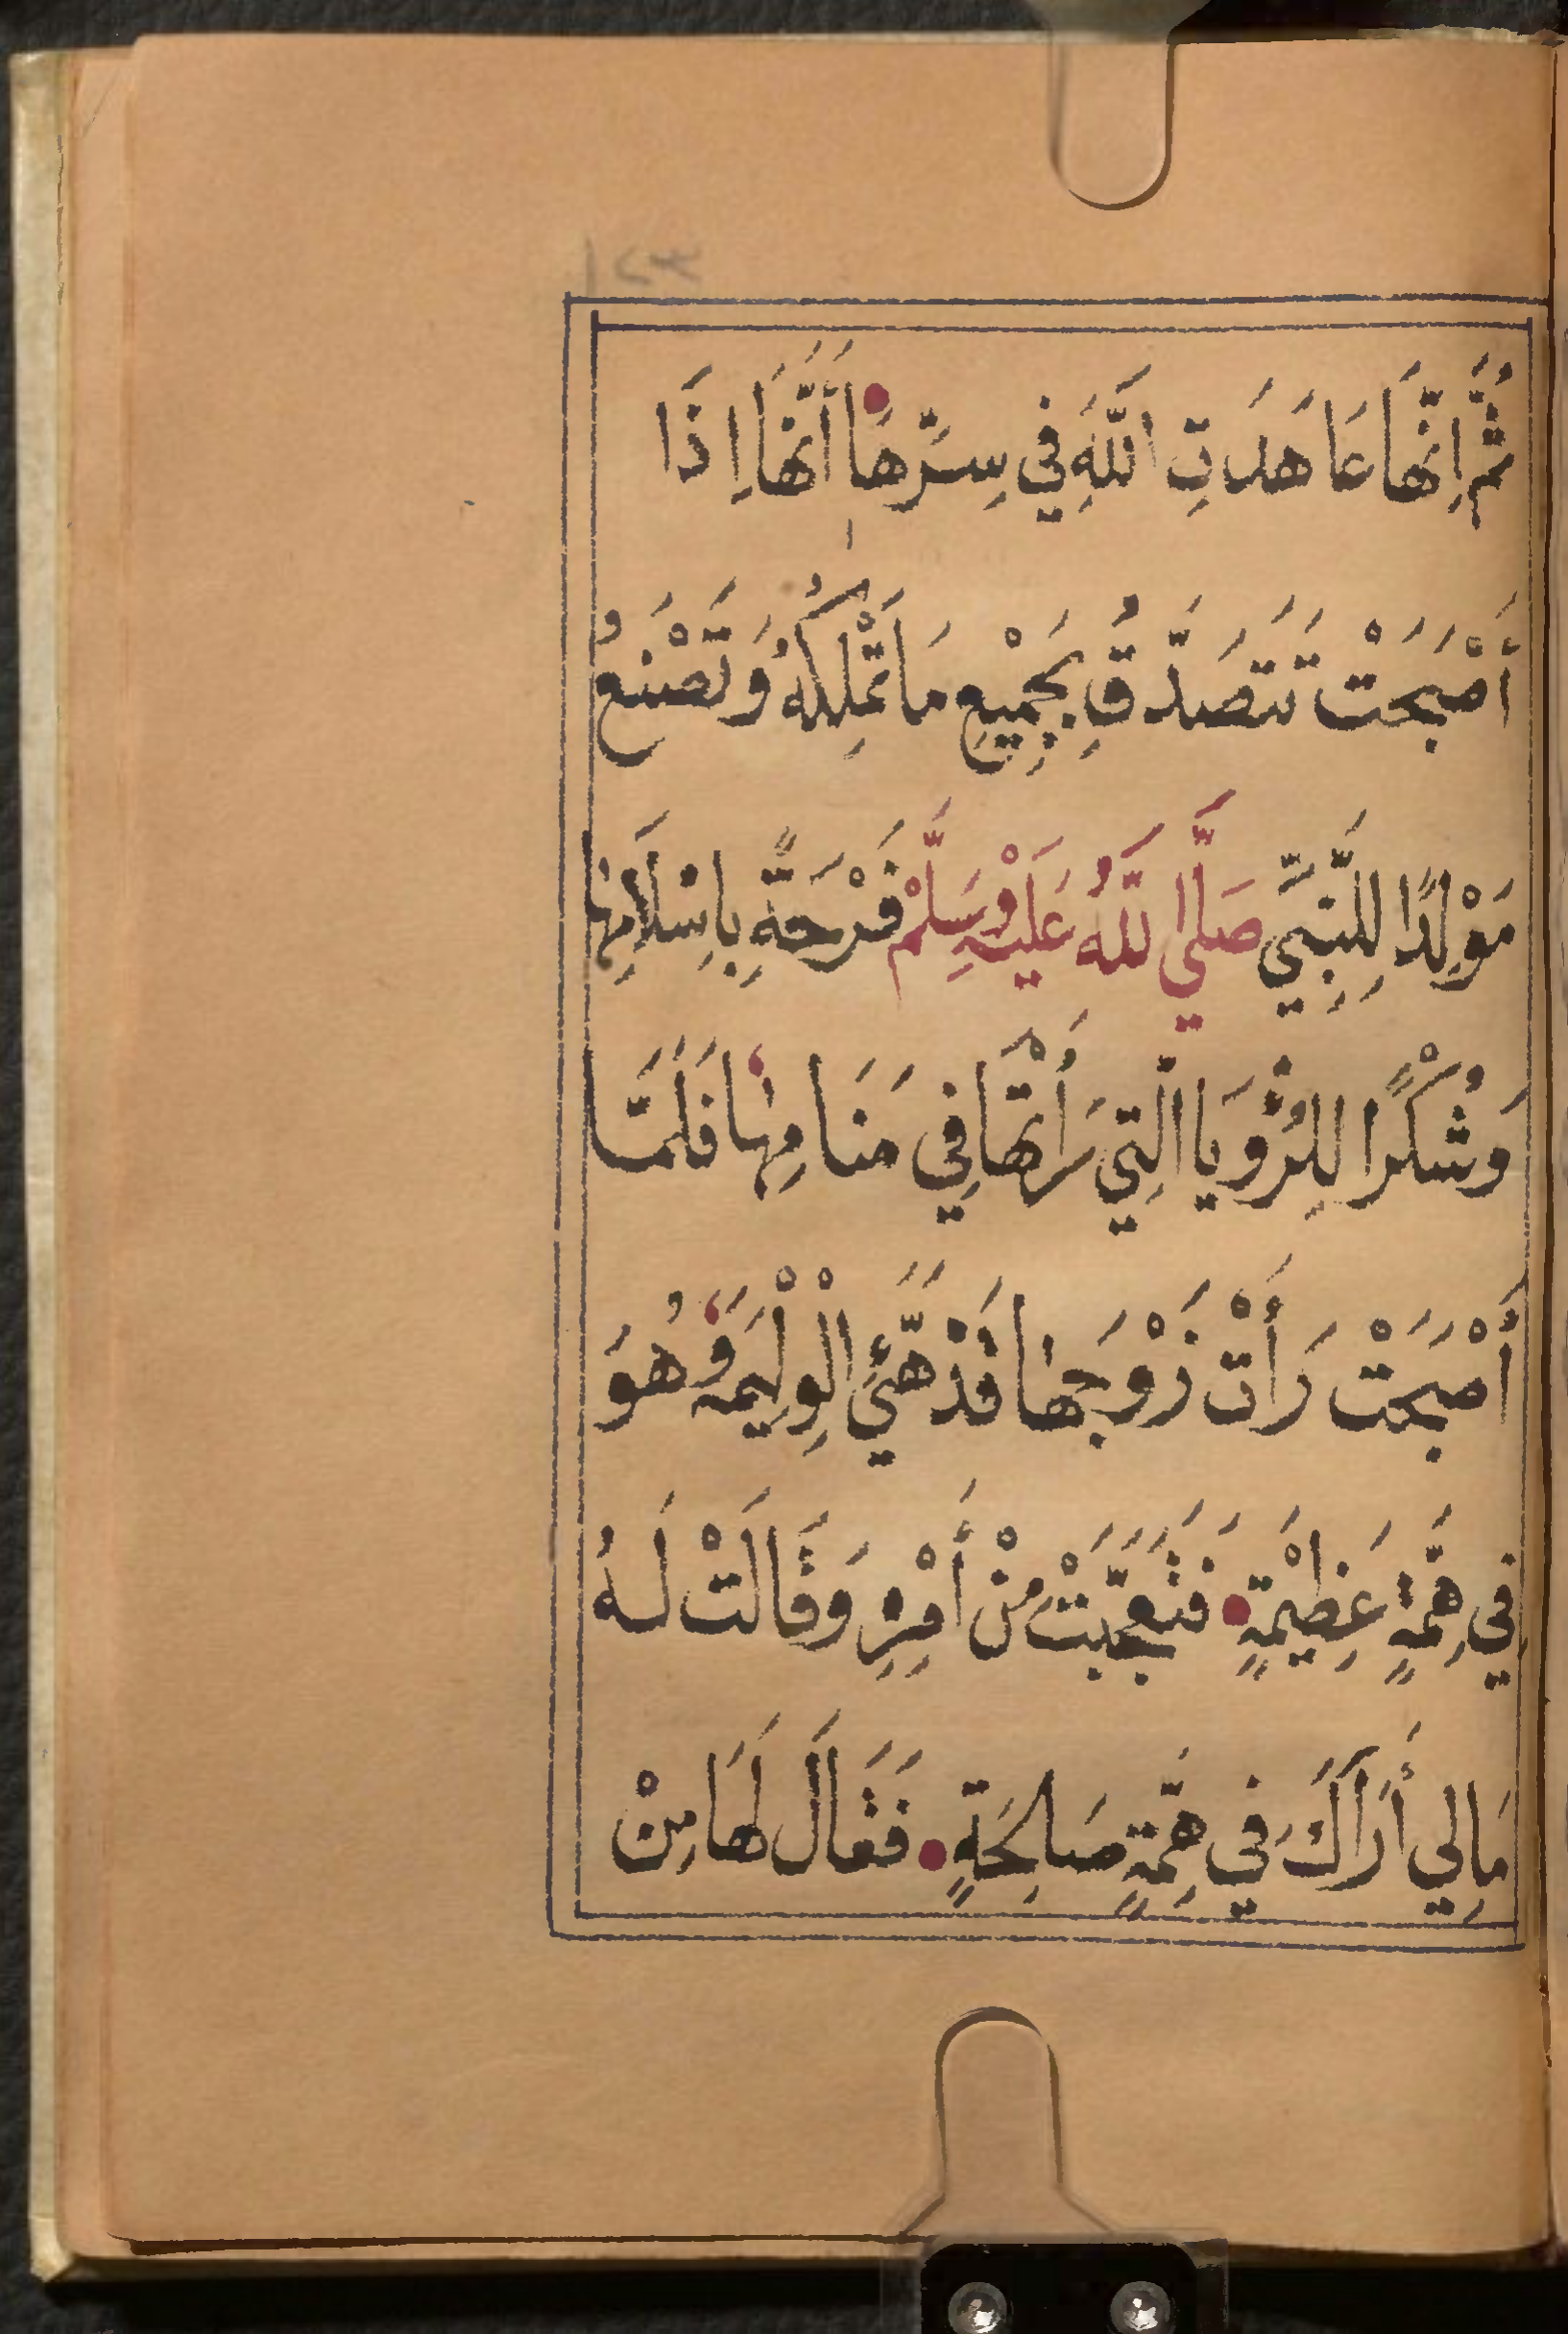 ثُمَّ اِنَّهَا عَاهَدَتِ اللَّهَ فِي سِرِّهَا أَنَّهَا اِذَا
أَصْبَحَتْ تَتَصَدَّقُ بِجَمِيْعِ مَا تَمْلِكُهُ وَتَصْنَعُ
مَوْلِدًا لِلنَّبِيِّ صَلَّي اللَّهُ عَلَيْهِ وَسَلَّمْ فَرْحَةً بِاِسْلَامِهَا
وَشُكْرًا لِلرُّؤْيَا الَّتِي رَأَتْهَا فِي مَنَامِهَا فَلَمَّا
أَصْبَحَتْ رَأَتْ زَوْجَهَا قَدْ هَيَّئَ الْوَلِيْمَةَ وَهُوَ
فِي هِمَّةٍ عَظِيْمَةٍ فَتَعَجَّبَتْ مِنْ أَمْرِهِ وَقَالَتْ لَهُ
مَالِي أَرَاكَ فِي هِمَّةٍ صَالِحَةٍ فَقَالَ لَهَا مِنْ